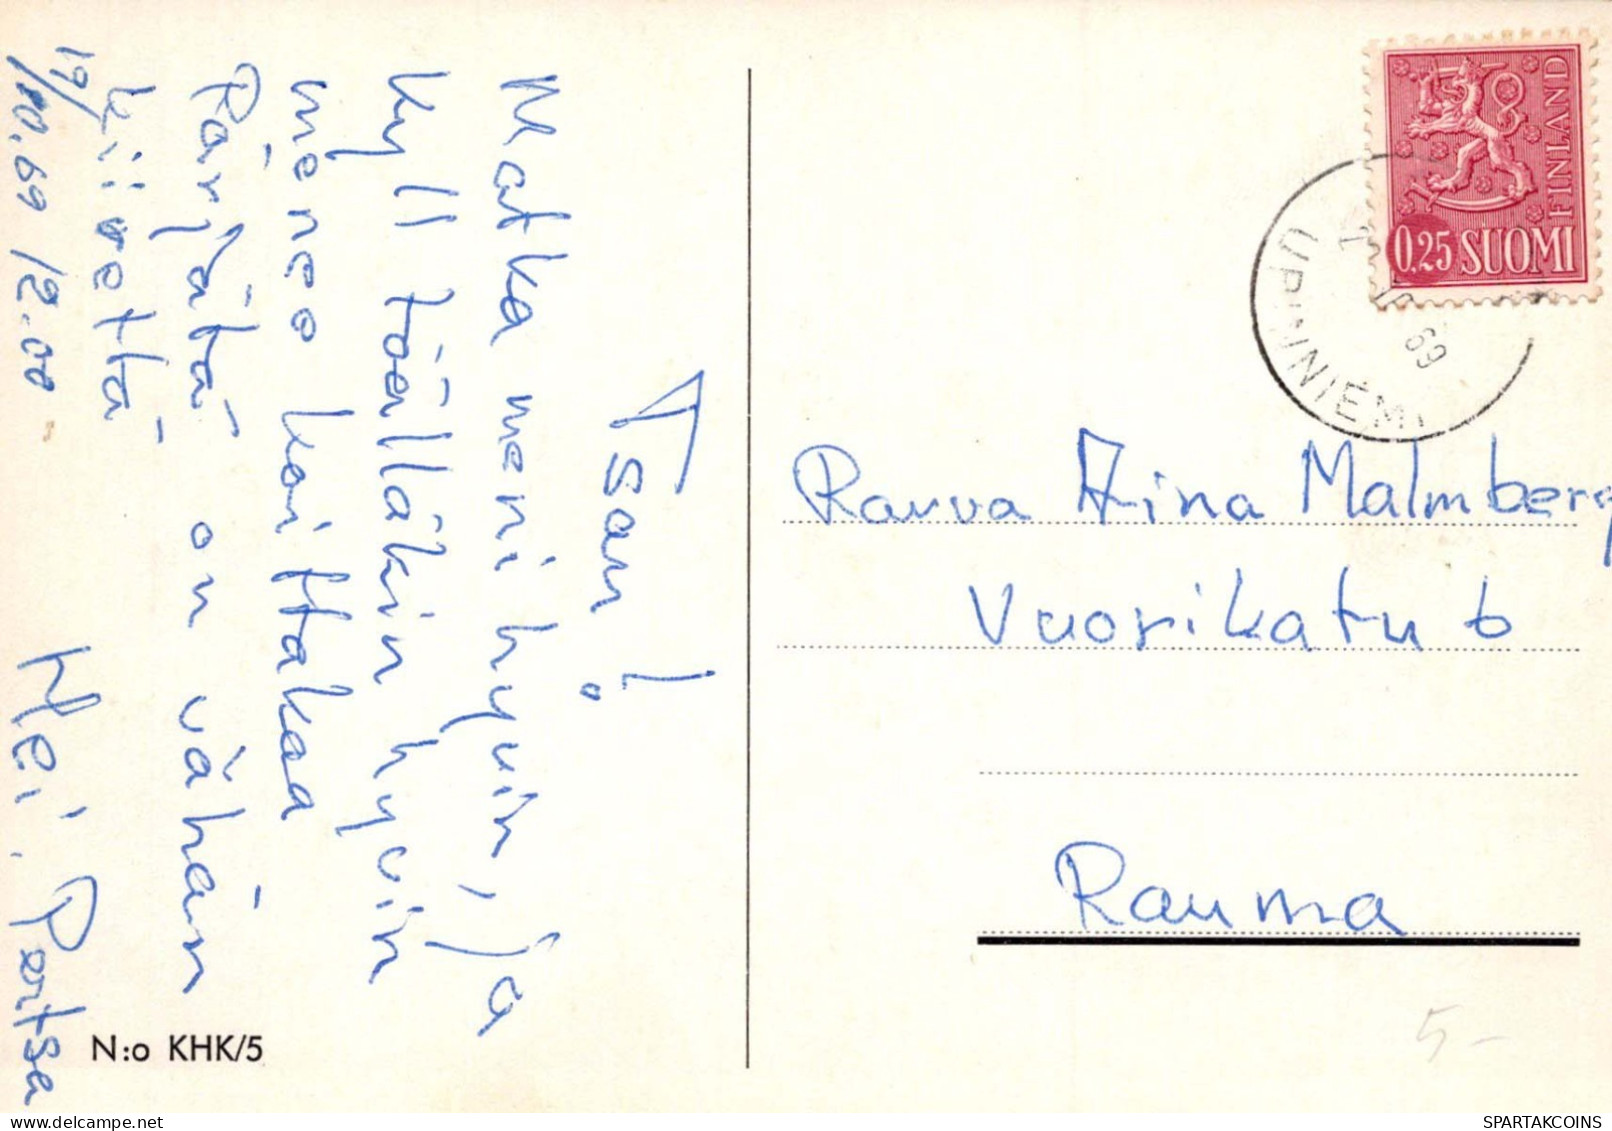 Tsau!
Matka meni hyvin, ja
kyll täälläkin hyvin
menee
Pärjätä on vähän
kiirettä
19/10.69 12.00
Hei. Pertsa
N:o KHK/5
FINLAND
0,25 SUOMI
UPINNIEMI
69
Rouva Aina Malmberg
Vuorikatu 6
Rauma
5-
SPARTAKCOINS